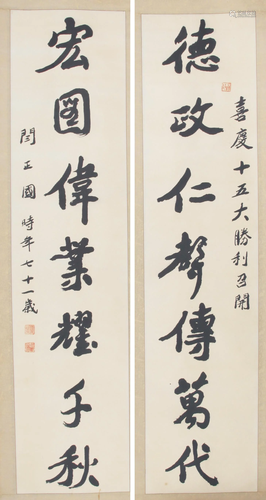 喜慶十五大勝利召開
德政仁聲傳萬代
宏圖偉業耀千秋
閆正國時年七十一歲